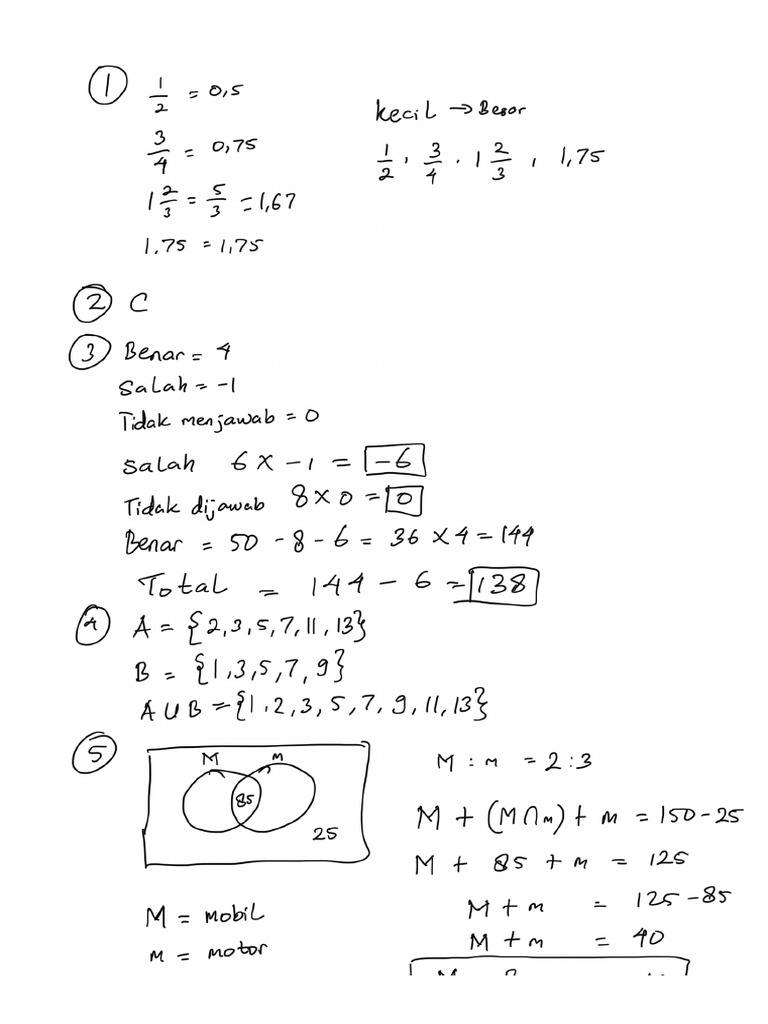 ① 1/2 = 0,5
3/4 = 0,75
1 2/3 = 5/3 = 1,67
1.75 = 1,75
kecil → Besar
1/2, 3/4, 1 2/3, 1,75
② C
③ Benar = 4
Salah = -1
Tidak menjawab = 0
Salah 6 x -1 = -6
Tidak dijawab 8 x 0 = 0
Benar = 50 - 8 - 6 = 36 x 4 = 144
Total = 144 - 6 = 138
④ A = {2,3,5,7,11,13}
B = {1,3,5,7,9}
A U B = {1,2,3,5,7,9,11,13}
⑤ M m
85
25
M = mobil
m = motor
M : m = 2 : 3
M + (M∩m) + m = 150 - 25
M + 85 + m = 125
M + m = 125 - 85
M + m = 40